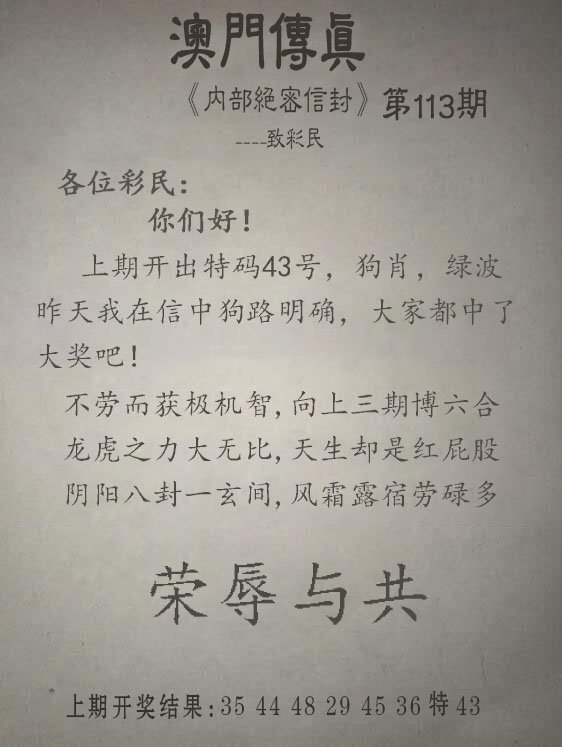 澳門傳眞
《内部絕密信封》第113期
----致彩民
各位彩民：
你们好！
上期开出特码43号，狗肖，绿波
昨天我在信中狗路明确，大家都中了
大奖吧！
不劳而获极机智,向上三期博六合
龙虎之力大无比,天生却是红屁股
阴阳八封一玄间,风霜露宿劳碌多
荣辱与共
上期开奖结果:35 44 48 29 45 36 特 43